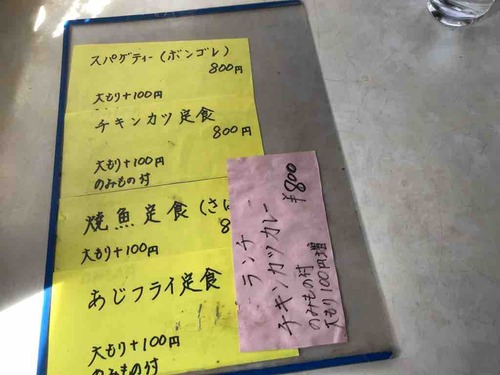 スパゲティー(ボンゴレ)
800円
大もり+100円
チキンカツ定食
800円
大もり+100円
のみもの付
焼魚定食(さば
8
大もり+100円
あじフライ定食
大もり+100円
のみもの付
ランチ
チキンカツカレー ¥800
のみもの付
大もり100円増